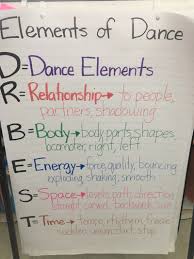 Elements of Dance
D=Dance Elements
R=Relationship→ to people,
partners, shadowing
B=Body→ body parts, shapes
locomotor, right, left
E=Energy→ force, quality, bouncing
exploding, shaking, smooth
S=Space→ levels, path, direction
straight, curved, backwards, size
T=Time→ tempo, rhythm, freeze
stop